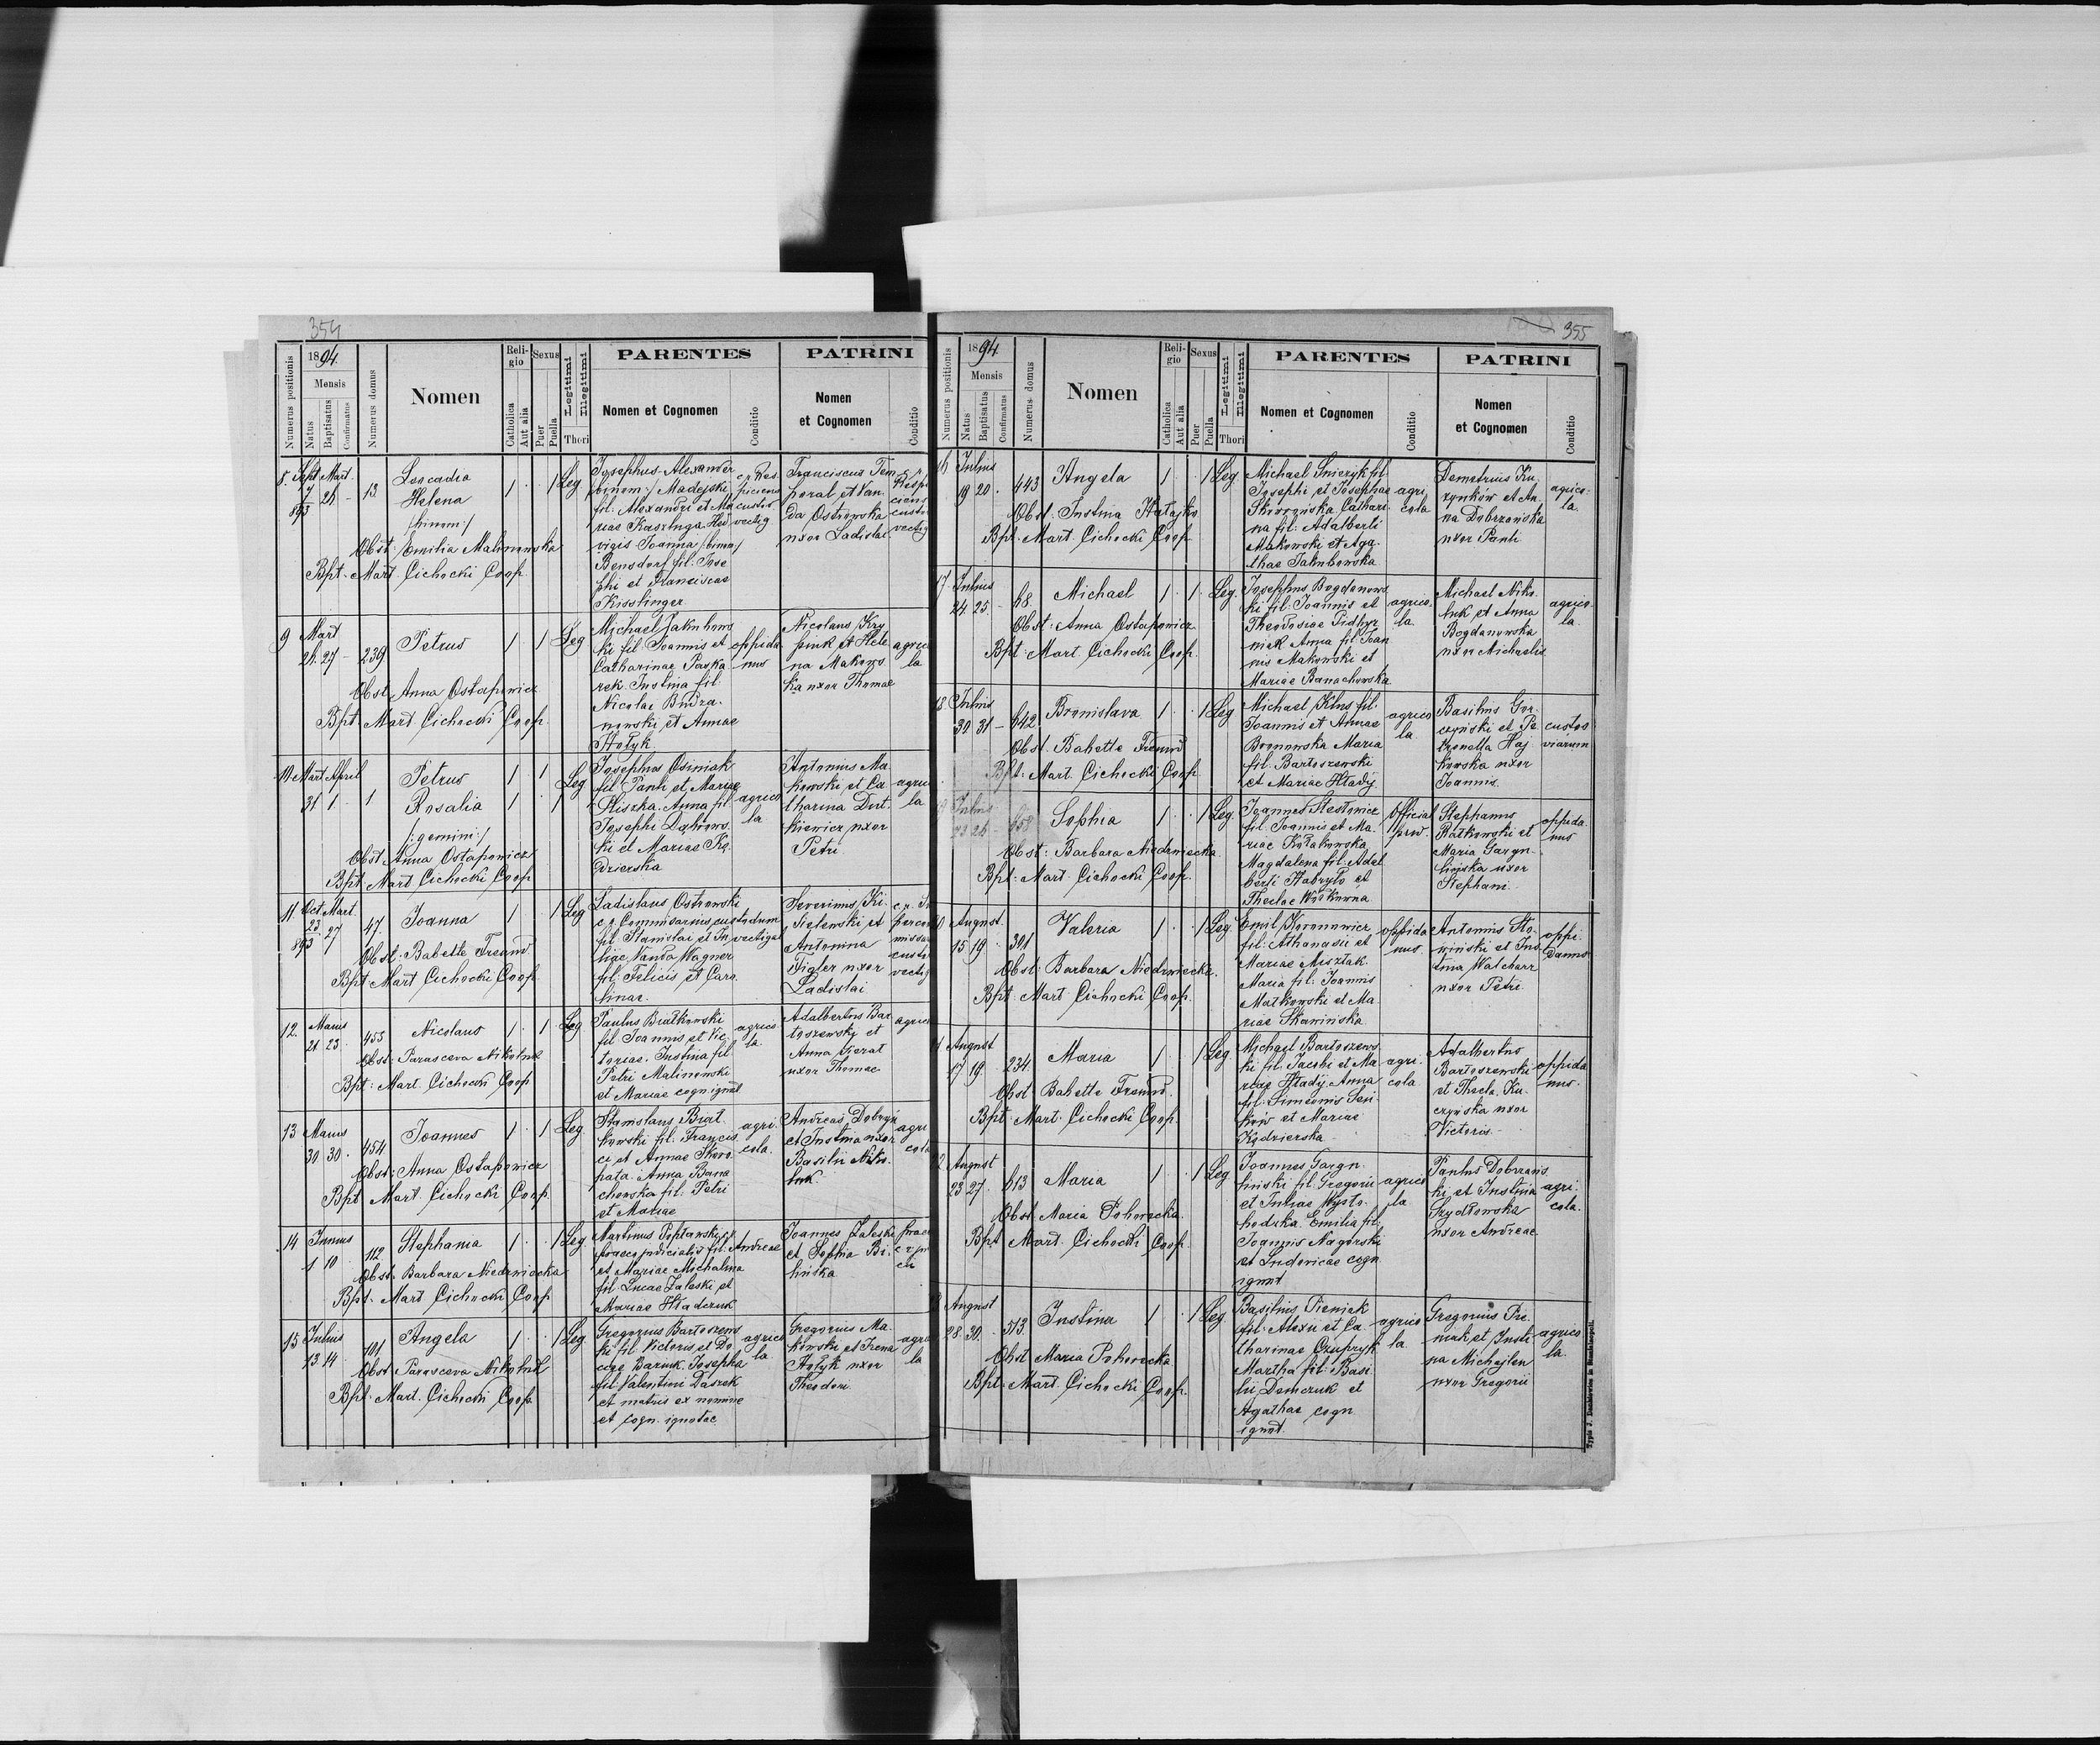 354
Numerus positionis
1894.
Mensis
Natus
Baptisatus
Confirmatus
Numerus domus
Nomen
Religio
Catholica
Aut alia
Sexus
Puer
Puella
Legitimi
Illegitimi
Thori
PARENTES
Nomen et Cognomen
Conditio
PATRINI
Nomen
et Cognomen
Conditio
8. Sept Mart.
7 26 - 13.
893
Leocadia
Helena
/:binom:/
Obst: Emilia Malinowska
Bpt. Mart. Cichocki Coop.
1 . . 1 Leg
Josephus-Alexander
binom:/ Madejski
fil: Alexandri et Ma
riae Kasznga. Hed
vigis Joanna /:binom:/
Bensdorf fil: Jose
phi et Franciscae
Kisslinger
c. r. Res
piciens
custod.
vectig
Franciscus Tem
poral et Van
da Ostrowska
uxor Ladislai
9 Mart
26. 27 - 239
Petrus
Obst. Anna Ostapowicz
Bpt. Mart. Cichocki Coop.
1 . 1 . Leg
Michael Jakubows
ki fil. Joannis et
Catharinae Paska
rek. Justina fil.
Nicolai Budza
nowski et Annae
Hołyk
oppida
nus
Nicolaus Kry
piuk et Hele
na Makows
ka uxor Thomae
agrico
la
10 Mart April
31 1. 1
Petrus
Rosalia
/:gemini:/
Obst. Anna Ostapowicz
Bpt. Mart Cichocki Coop.
1 . 1
1 . . 1
Leg
Josephus Osiniak
fil Pauli et Mariae
Pliszka. Anna fil
Josephi Dąbrows
ki et Mariae Kę
dzierska
agrico
la
Antonius Ma
kowski et Ca
tharina Dut
kiewicz uxor
Petri
agrico
la
11 Oct. Mart.
23 27 47.
893
Joanna
Obst. Babette Freund
Bpt. Mart Cichocki Coop.
1 . . 1 Leg
Ladislaus Ostrowski
c. r. Commisarius custodum
fil Stanislai et Ju
liae, Vanda Wagner
fil: Felicis et Caro
linae.
vectigal
Severinus Ki
sielewski et
Antonina
Figler uxor
Ladislai
12. Maius
21 23. 455
Nicolaus
Obst: Parasceva Nikoluk
Bpt: Mart. Cichocki Coop
1 . 1 . Leg
Paulus Bratkowski
fil Joannis et Vic
toriae. Justina fil
Petri Malinowski
et Mariae cogn ignot
agrico
la.
Adalbertus Bar
toszewski et
Anna Sierat
uxor Thomae
agrico
13 Maius
30 30. 454
Joannes
Obst: Anna Ostapowicz
Bpt. Mart. Cichocki Coop.
1 . 1 Leg.
Stanislaus Brat
kowski fil. Francis
ci et Annae Skoro
pata. Anna Bana
chowska fil: Petri
et Mariae
agri
cola.
Andreas Dobryń
et Justina uxor
Basilii Niko
luk.
agri
cola
14 Junius
1 10 112.
Stephania
Obst: Barbara Niedzwiecka
Bpt. Mart Cichocki Coop
1 . . 1 Leg.
Martinus Popławski c. r
praeco judicialis fil. Andreae
et Mariae. Michalina
fil: Lucae Zaleski et
Mariae Hładczuk
Joannes Zaleski
et Sophia Bi
lińska
15 Julius
13 14 101
Angela
Obst: Parasceva Nikoluk
Bpt: Mart. Cichocki Coop.
1 . . 1 Leg.
Gregorius Bartoszews
ki fil Victoris et Do
ciae Baziuk. Josepha
fil Valentini Daszek
et matris ex nomine
et cogn. ignotae
agrico
la
Gregorius Ma
kowski et Irena
Hołyk uxor
Theodori
agrico
la
355
Numerus positionis
1894.
Mensis
Natus
Baptisatus
Confirmatus
Numerus domus
Nomen
Religio
Catholica
Aut alia
Sexus
Puer
Puella
Legitimi
Illegitimi
Thori
PARENTES
Nomen et Cognomen
Conditio
PATRINI
Nomen
et Cognomen
Conditio
16 Julius
19 20. 443
Angela
Obst. Justina Hałajko
Bpt. Mart. Cichocki Coop.
1 . . 1 Leg.
Michael Śnieżyk fil
Josephi et Josephae
Skorzyńska. Cathari
na fil: Adalberti
Makowski et Aga
thae Jakubowska
agri
cola
Demetrius Ku
zynków et An
na Dobrzańska
uxor Pauli
agrico-
la.
17. Julius
24. 25. - 68.
Michael
Obst: Anna Ostapowicz
Bpt: Mart. Cichocki Coop.
1 . 1 . Leg.
Josephus Bogdanows
ki fil. Joannis et
Theodosiae Pidhyr
niak Anna fil Joan
nis Makowski et
Mariae Banachowska
agrico
la.
Michael Niko
luk et Anna
Bogdanowska
uxor Michaelis
agrico
la.
18 Julius
30. 31 - 642
Bronislava
Obst. Babette Freund
Bpt: Mart. Cichocki Coop.
1 . . 1 Leg.
Michael Klus fil.
Joannis et Annae
Bronowska Maria
fil. Bartoszewski
et Mariae Hładij
agrico
la
Basilius Gor
czyński et Pe
tronella Haj
kowska uxor
Joannis.
custos
viarum
Julius
Sophia
Obst: Barbara Niedzwiecka.
Bpt: Mart. Cichocki Coop.
1 . . 1 Leg.
Joannes Stestowicz
fil. Joannis et Ma
riae Kołakowska
Magdalena fil. Adal
berti Habryło et
Theclae Woitkowna
Official
priv.
Stephanus
Ratkowski et
Maria Gargu
lińska uxor
Stephani
oppida
nus
August.
15 19. 301
Valeria
Obst: Barbara Niedzwiecka.
Bpt: Mart Cichocki Coop.
1 . . 1 Leg.
Emil Woronowicz
fil: Athanasii et
Mariae Misztak.
Maria fil: Joannis
Matkowski et Ma
riae Skawińska
oppida
nus.
Antonius Sło
wiński et Jus
tina Walcharz
uxor Petri
oppi
danus
August
17 19. 234
Maria
Obst Babette Freund.
Bpt: Mart. Cichocki Coop.
1 . . 1 Leg.
Michael Bartoszews
ki fil. Jacobi et Ma
riae Hładij Anna
fil: Simeonis Seń
ków et Mariae
Kędzierska
agri
cola
Adalbertus
Bartoszewski
et Thecla Ku
czyńska uxor
Victoris
oppida
nus.
August
23 27. 613
Maria
Obst. Maria Pohorecka.
Bpt. Mart. Cichocki Coop.
1 . . 1 Leg.
Joannes Gargu
liński fil. Gregorii
et Juliae Wysło
hodzka. Emilia fil.
Joannis Nagórski
et Ludovicae cogn
ignot
agrico
la
Paulus Dobrzańs
ki et Justina
Szydłowska
uxor Andreae
agri
cola.
August
28. 30. - 513.
Justina
Obst Maria Pohorecka
Bpt: Mart. Cichocki Coop.
1 . . 1 Leg.
Basilius Pieniak
fil: Alexii et Ca
tharinae Czupryk
Martha fil: Basi
lii Demczuk et
Agathae cogn
ignot.
agrico
la
Gregorius Pie
niak et Justi
na Michajlen
uxor Gregorii
agrico
la.